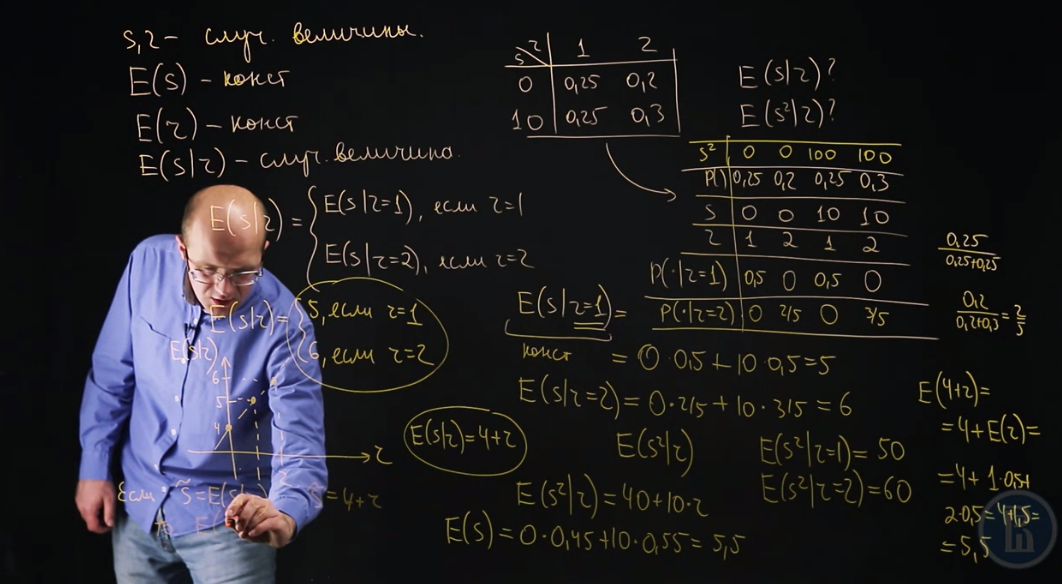 s, r – случ. величины.
E(s) – конст
E(r) – конст
E(s|r) – случ. величина.
E(s|r) = { E(s|r=1), если r=1
E(s|r=2), если r=2
E(s|r) = { 5, если r=1
6, если r=2
E(s|r)
6
5
4
r
Если s̃ = E(s|r) s̃ = 4+r
E(s|r) = 4+r
s r 1 2
0 0,25 0,2
10 0,25 0,3
E(s|r)?
E(s²|r)?
s² 0 0 100 100
P() 0,25 0,2 0,25 0,3
s 0 0 10 10
r 1 2 1 2
P(·|r=1) 0,5 0 0,5 0
P(·|r=2) 0 2/5 0 3/5
0,25
0,25+0,25
0,2
0,2+0,3 = 2/5
E(s|r=1) =
конст = 0·0,5+10·0,5=5
E(s|r=2) = 0·2/5+10·3/5 = 6
E(s²|r) E(s²|r=1) = 50
E(s²|r=2) = 60
E(s²|r) = 40+10·r
E(s) = 0·0,45+10·0,55 = 5,5
E(4+r) =
= 4+E(r) =
= 4+1·0,5+
2·0,5 = 4+1,5 =
= 5,5